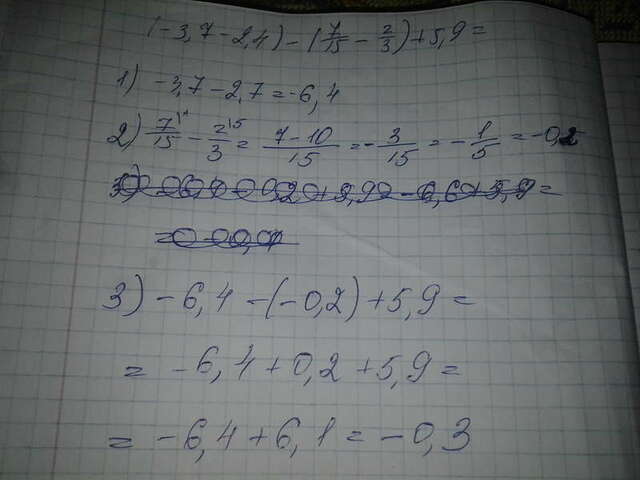 (-3,7-2,4)-(7/15-2/3)+5,9=
1) -3,7-2,7=-6,4
2) 7/15 - 2/3 = 7-10/15 = -3/15 = -1/5 = -0,2
3) -6,4-(-0,2)+5,9=
= -6,4+0,2+5,9=
= -6,4+6,1=-0,3